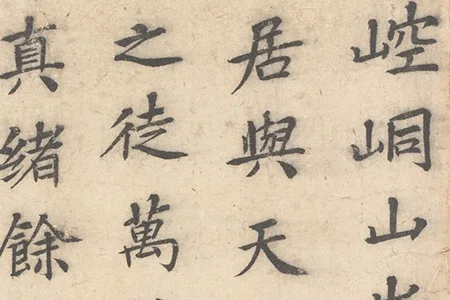 崆峒山
居與天
之徒萬
真緒餘